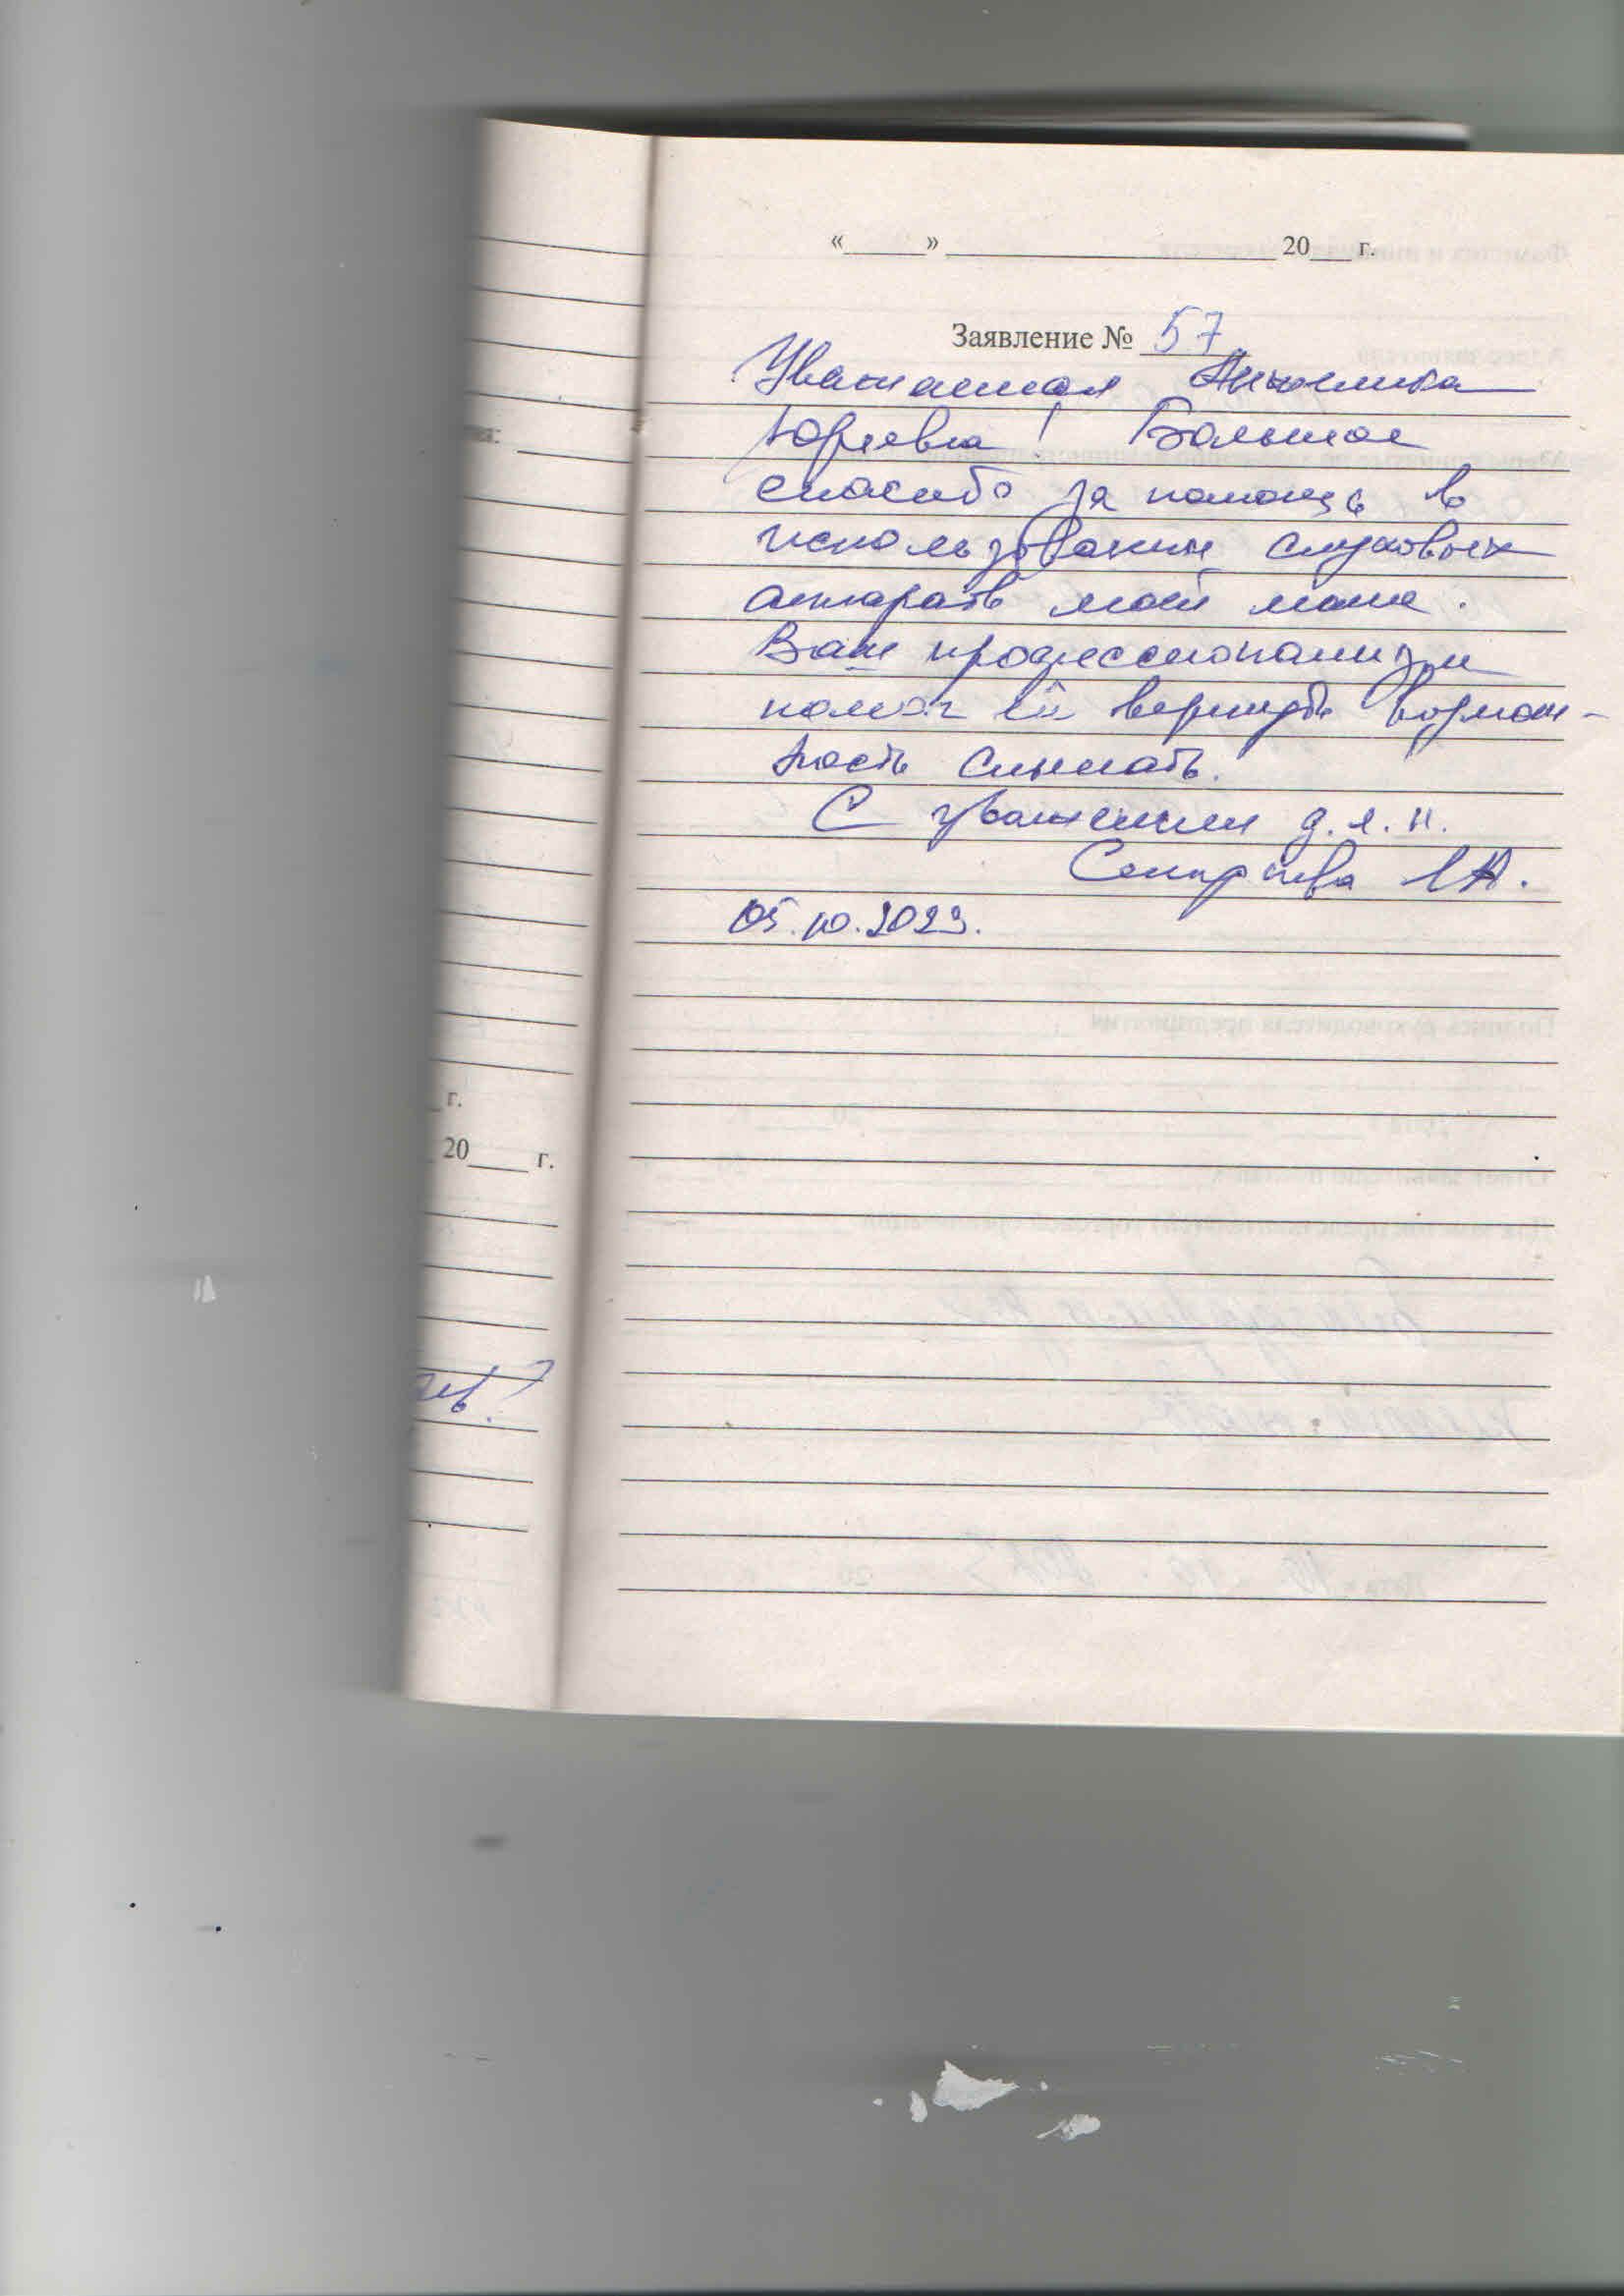 « » 20 г.
Заявление № 57
Уважаемая Анжелика
Юрьевна! Большое
спасибо за помощь в
использовании слуховых
аппаратв моей маме.
Ваш профессионализм
помог ей вернуть возмож-
ность слышать.
С уважением д.я.н.
05.10.2023.
г.
20 г.